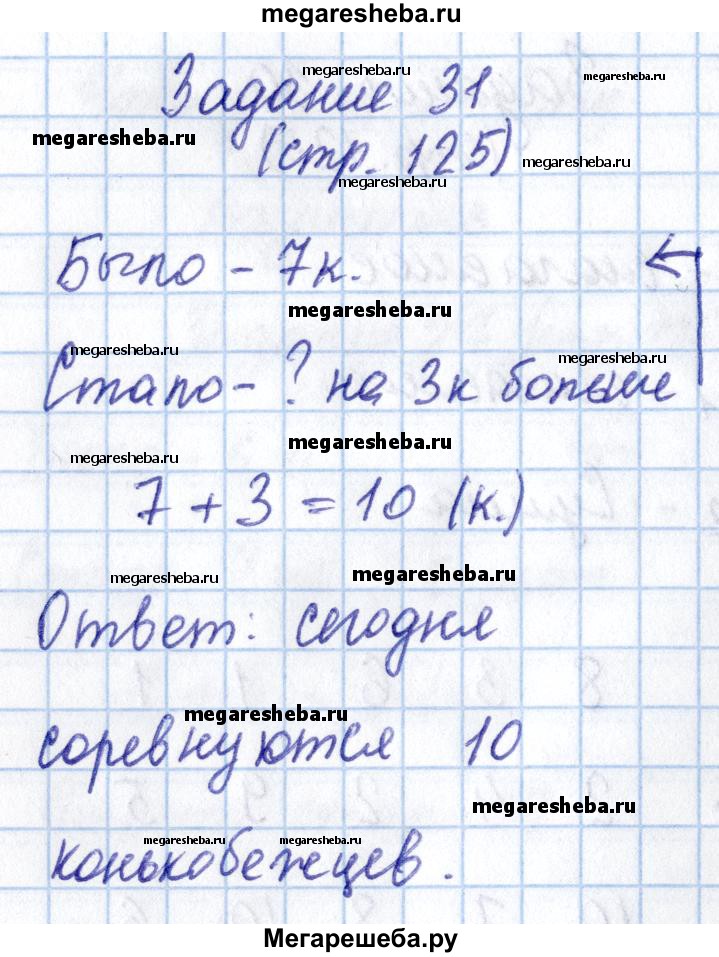 megaresheba.ru
Задание 31
megaresheba.ru
megaresheba.ru
megaresheba.ru
(стр. 125)
megaresheba.ru
megaresheba.ru
Было - 7к.
megaresheba.ru
megaresheba.ru
megaresheba.ru
Стало - ? на 3к больше
megaresheba.ru
megaresheba.ru
7 + 3 = 10 (к.)
megaresheba.ru
megaresheba.ru
Ответ: сегодня
megaresheba.ru
соревнуются 10
megaresheba.ru
megaresheba.ru
megaresheba.ru
конькобежцев.
Мегарешеба.ру